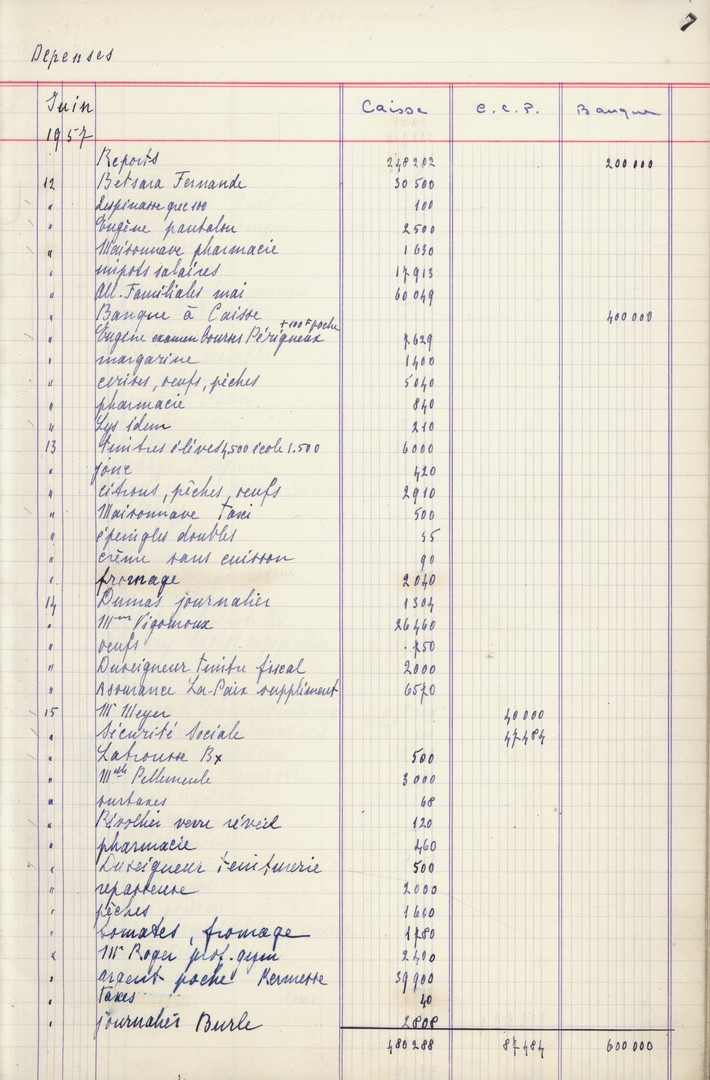 7
Depenses
Juin Caisse C.C.P. Banque
1957
Reports 248202 200 000
12 Betsara Fernande 30 500
" Lespinasse grec 100 100
" Eugène pantalon 2500
" Maisonnave pharmacie 1630
" impots salaires 17913
" All. Familiales mai 60 049
" Banque à Caisse 400 000
+100 F poche
" Eugène examen bourses Périgueux 7629
" margarine 1400
" cerises, oeufs, pêches 5040
" pharmacie 840
" Lys idem 210
13 timbres élèves 4,500 école 1.500 6000
" jonc 420
" citrons, pêches, oeufs 2910
" Maisonnave Taxi 500
" épingles doubles 55
" crème sans cuisson 90
" fromage 2040
14 Dumas journalier 1304
" Mme Vigouroux 26460
" oeufs .750
" Duseigneur timbre fiscal 2000
" Assurance La-Paix suppliment 6570
15 Mr Meyer 40 000
" Sécurité Sociale 47484
" Labrousse Bx 500
" Mlle Pellemeule 3000
" surtaxes 68
" Rivollier verre réveil 120
" pharmacie 460
" Duseigneur teinturerie 500
" repasseuse 2000
" pêches 1600
" tomates, fromage 1780
" Mr Roger prof. gym 2400
" argent poche Kermesse 39900
" Taxes 40
" journalier Burle 2808
480288 87484 600 000